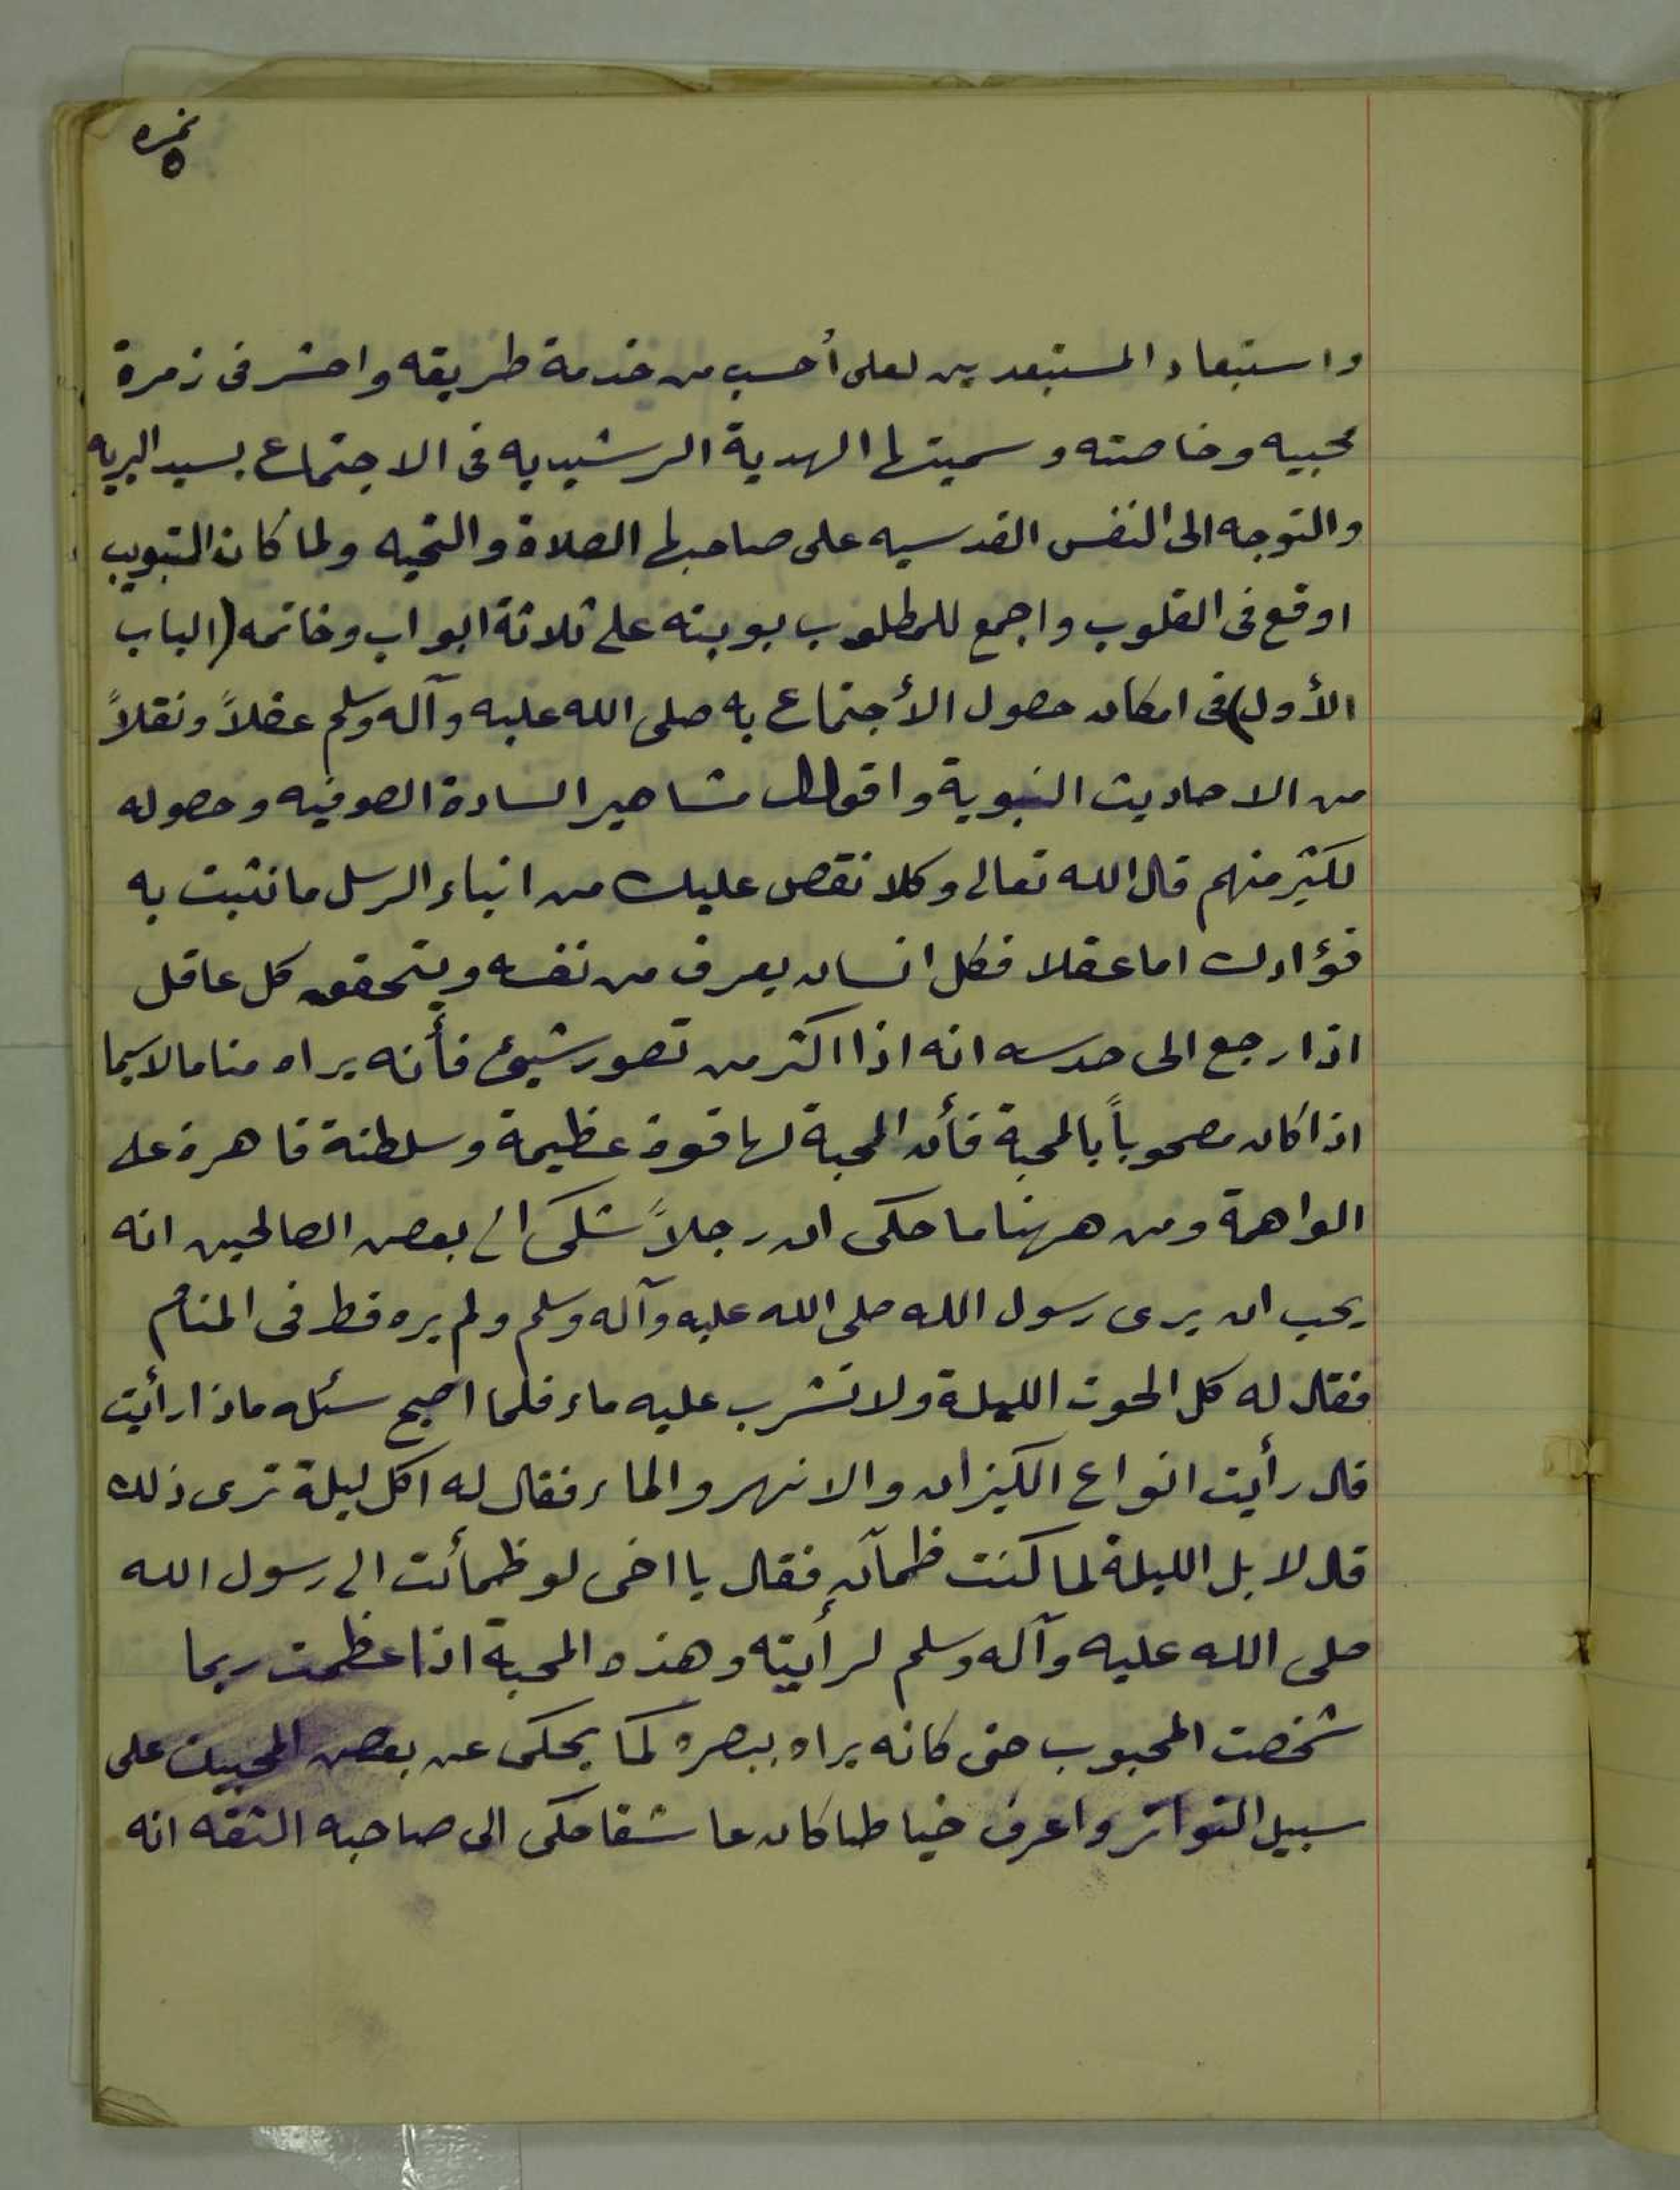 نمره
٥
واستبعاد المستبعدين لعلى أحسب من خدمة طريقه واحشر فى زمرة
محبيه وخاصته وسميتها الهدية الرشيديه فى الاجتماع بسيد البريه
والتوجه الى النفس القدسيه على صاحبها الصلاة والتحيه ولما كان التبويب
اوقع فى القلوب واجمع للمطلوب بوبته على ثلاثة ابواب وخاتمه (الباب
الأول) فى امكان حصول الأجتماع به صلى الله عليه وآله وسلم عقلاً ونقلاً
من الاحاديث النبوية واقوال مشاهير السادة الصوفيه وحصوله
لكثير منهم قال الله تعالى وكلا نقص عليك من انباء الرسل ما نثبت به
فؤادك اما عقلا فكل انسان يعرف من نفسه ويتحقق كل عاقل
اذا رجع الى حدسه انه اذا اكثر من تصور شيئ فأنه يراه مناما لاسيما
اذا كان مصحوباً بالمحبة فأن المحبة لها قوة عظيمة وسلطنة قاهرة على
الواهمة ومن ههنا ما حكى ان رجلاً شكى الى بعض الصالحين انه
يحب ان يرى رسول الله صلى الله عليه وآله وسلم ولم يره قط فى المنام
فقال له كل الحوت الليلة ولا تشرب عليه ماء فلما اصبح سئله ماذا رأيت
قال رأيت انواع الكيزان والانهر والماء فقال له اكل ليلة ترى ذلك
قال لا بل الليلة لما كنت ظمآن فقال يا اخى لو ظمأت الى رسول الله
صلى الله عليه وآله وسلم لرأيته وهذه المحبة اذا عظمت ربما
شخصت المحبوب حتى كانه يراه ببصره كما يحكى عن بعض المحبين على
سبيل التواتر واعرف خياطا كان عاشقا حكى الى صاحبه الثقه انه